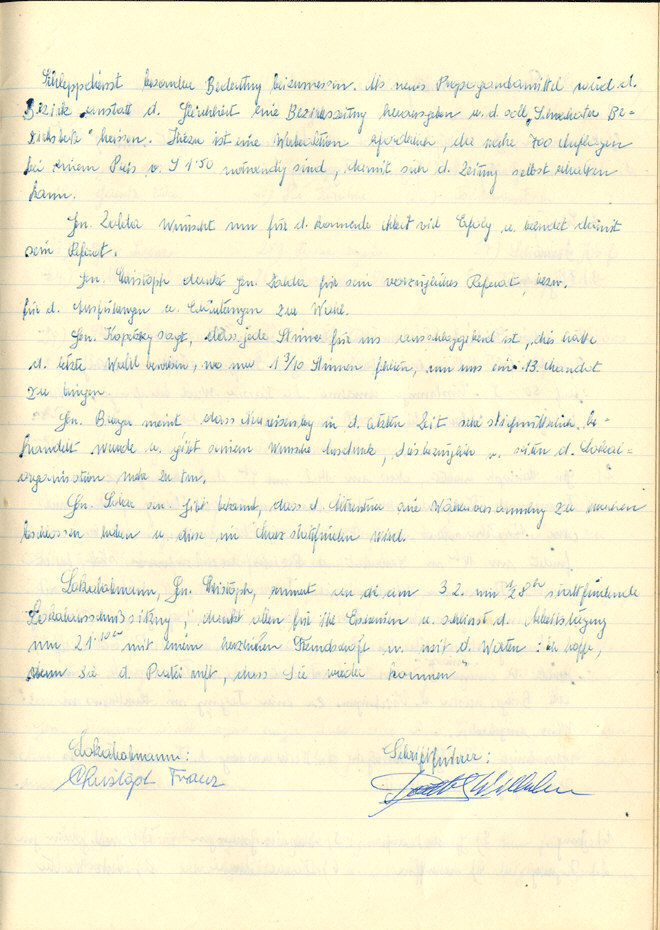 Schleppdienst besondere Bedeutung beizumessen. Als neues Propagandamittel wird d.
Bezirk anstatt d. Gleichheit eine Bezirkszeitung herausgeben u. d. soll „Schwechater Be-
zirksbote" heissen. Hiezu ist eine Werbeaktion erforderlich, da rache 700 Auflagen
bei einem Preis v. S 1·50 notwendig sind, damit sich d. Zeitung selbst erhalten
kann.
Gen. wünscht nun für d. kommende Arbeit viel Erfolg u. beendet damit
sein Referat.
Gen. Christöph dankt Gen. für sein vorzügliches Referat, bezw.
für d. Ausführungen u. Erläuterungen zur Wahl.
Gen. Kopetzky sagt, dass jede Stimme für uns ausschlaggebend ist, dies hätte
d. letzte Wahl bewiesen, wo nur 1 3/10 Stimmen fehlten, um uns ein 13. Mandat
zu bringen
Gen. meint, dass in d. letzten Zeit sehr stiefmütterlich be-
handelt wurde u. gibt seinem Wunsche Ausdruck, diesbezüglich v. seiten d. Lokal-
organisation mehr zu tun.
Gen. sen. gibt bekannt, dass d. eine zu machen
beschlossen haben u. diese im März stattfinden wird.
Lokalobmann, Gen. Christöph, erinnert an die am 3.2. um ½8 Uhr stattfindende
Lokalausschußsitzung, dankt allen für ihr Erscheinen u. schliesst d. Arbeitstagung
um 21·10 Uhr mit einem herzlichen Freundschaft u. mit d. Worten: „Ich hoffe,
wenn Sie d. Partei ruft, dass Sie wieder kommen"
Lokalobmann: Schriftführer:
Christöph Franz Wilhelm